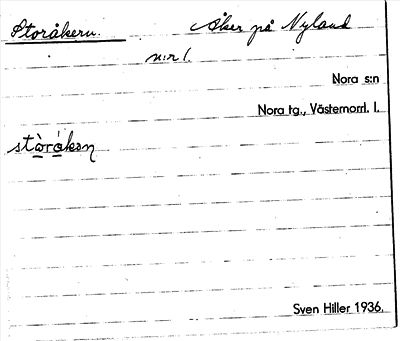 Storåkern.
Åker på Nyland
n:r 1.
Nora s:n
Nora tg., Västernorrl. l.
stòråkən
Sven Hiller 1936.